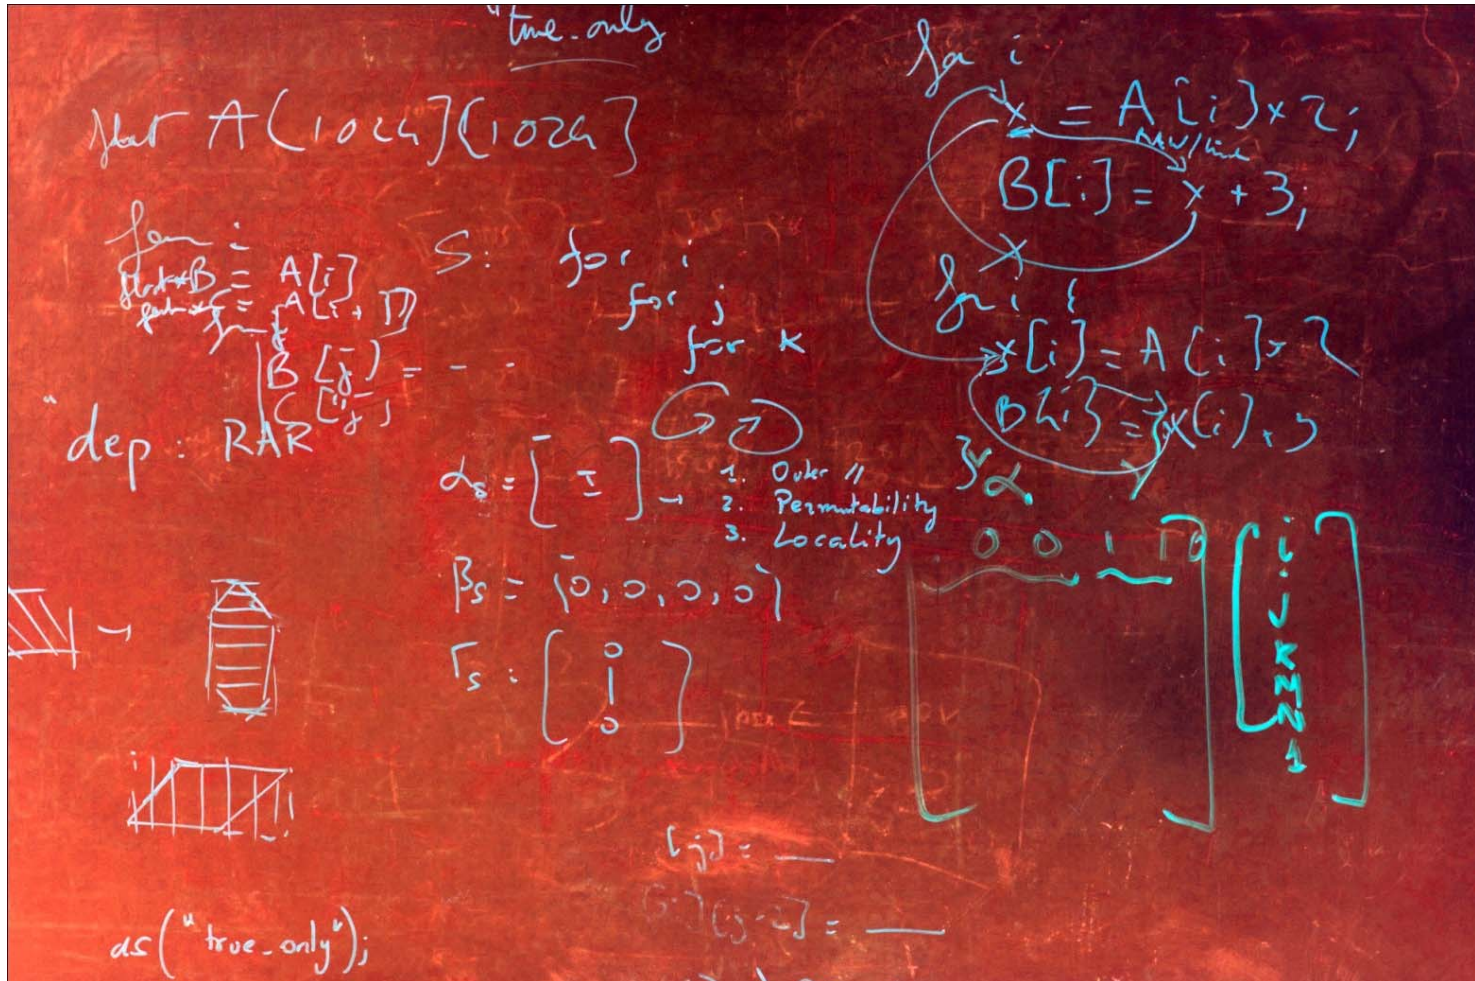 "true_only
float A[1024][1024]
for i
float*B = A[i]
float*C = A[i+1]
for j
B[j] = - -
C[j]
"dep : RAR
S: for i
for j
for k
αs = [ I ] →
1. Outer //
2. Permutability
3. Locality
βs = [0, 0, 0, 0]
Γs : [0 | 0]
[j] = __
[j-2] = __
as("true_only");
for i
x = A[i] x 2;
RAW/
B[i] = x + 3;
X
for i {
x[i] = A[i] x 2
B[i] = x[i] + 3
}
α γ
0 0 1 1 0
i
j
k
M
N
1